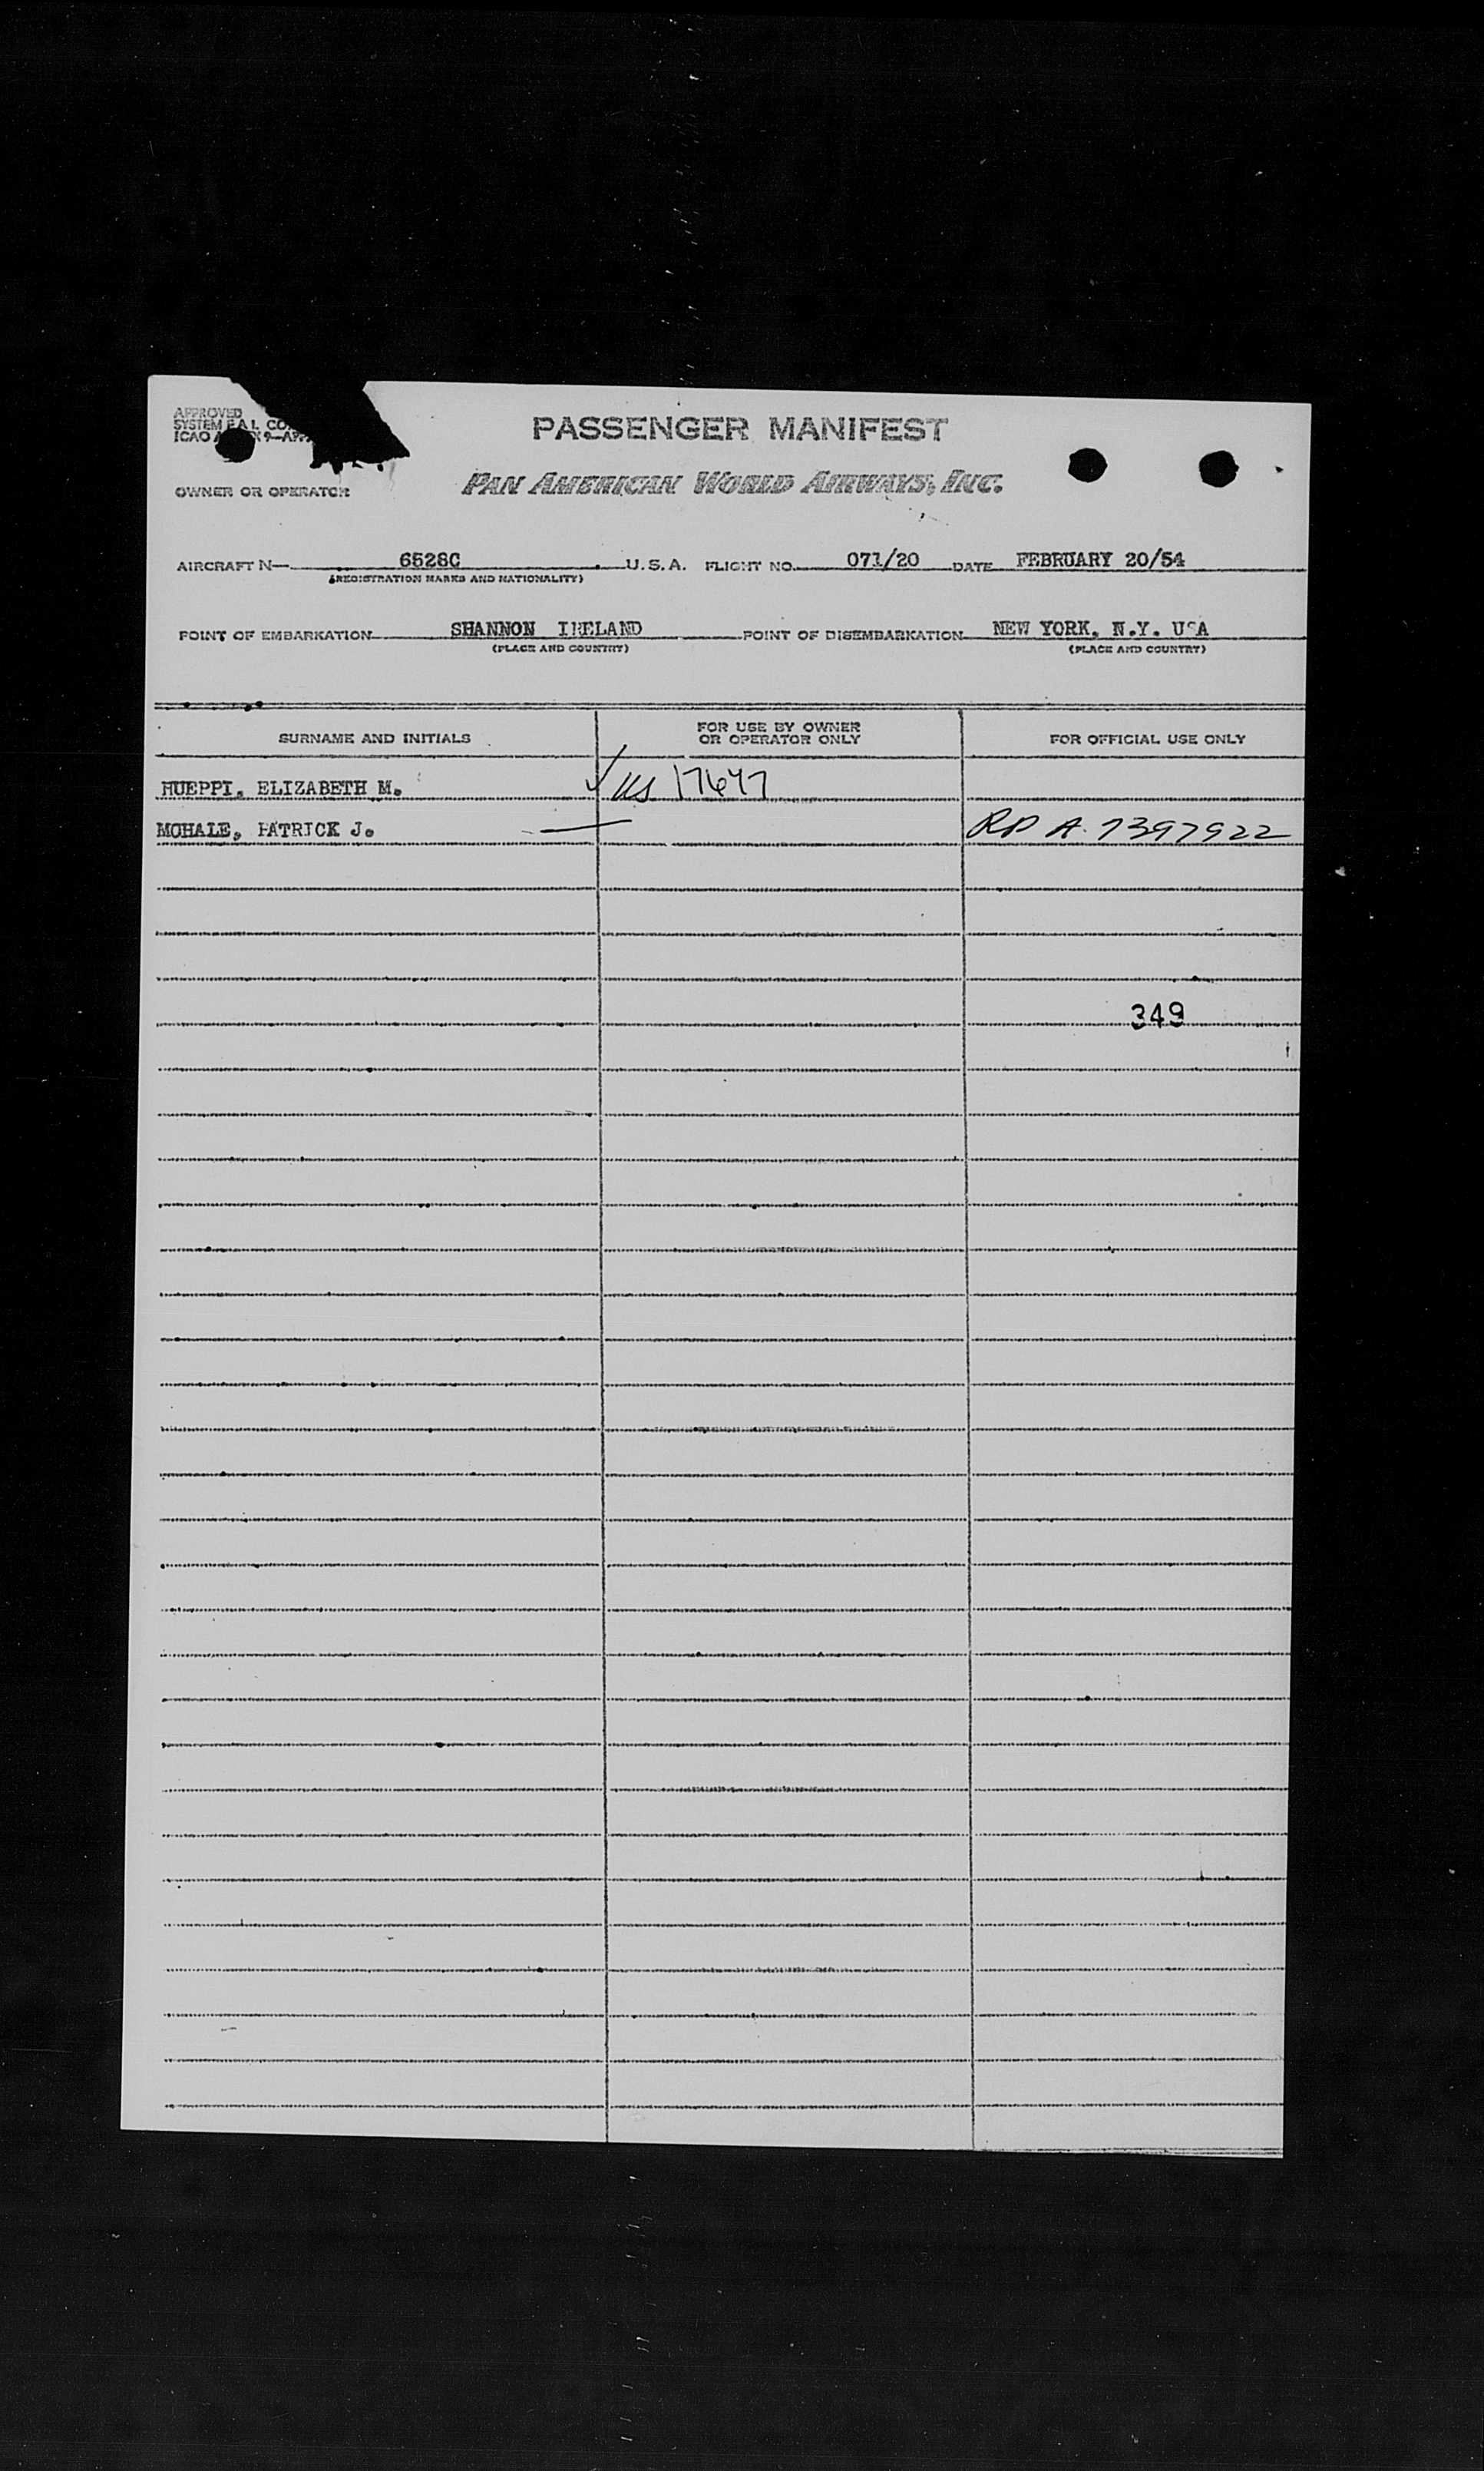 APPROVED
SYSTEM
ICAO
PASSENGER MANIFEST
OWNER OR OPERATOR PAN AMERICAN WORLD AIRWAYS, INC.
AIRCRAFT N— 6528C U.S.A. FLIGHT NO. 071/20 DATE FEBRUARY 20/54
(REGISTRATION MARKS AND NATIONALITY)
POINT OF EMBARKATION SHANNON IRELAND POINT OF DISEMBARKATION NEW YORK, N.Y. USA
(PLACE AND COUNTRY) (PLACE AND COUNTRY)
SURNAME AND INITIALS FOR USE BY OWNER OR OPERATOR ONLY FOR OFFICIAL USE ONLY
HUEPPI, ELIZABETH M. ✓ US 17677
MOHALE, PATRICK J. — RP A 7397922
349